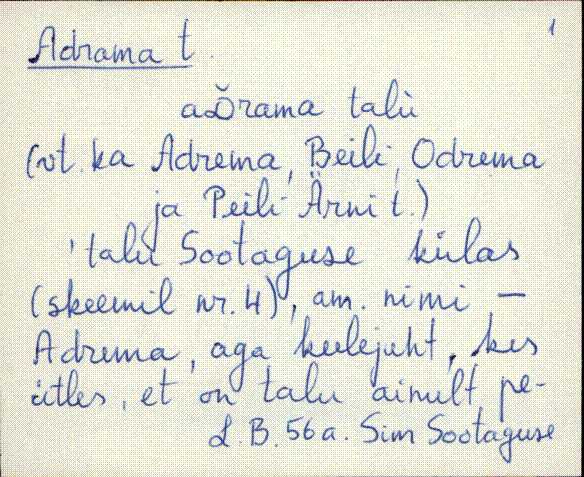 1
Adrama t.
aD̆rama talù
(vt. ka Adrema, Beili, Odrema
ja Peili-Ärni t.)
'talu Sootaguse külas
(skeemil nr. 4), am. nimi —
Adrema, aga keelejuht, kes
ütles, et on talu ainult pe-
L.B. 56a. Sim Sootaguse